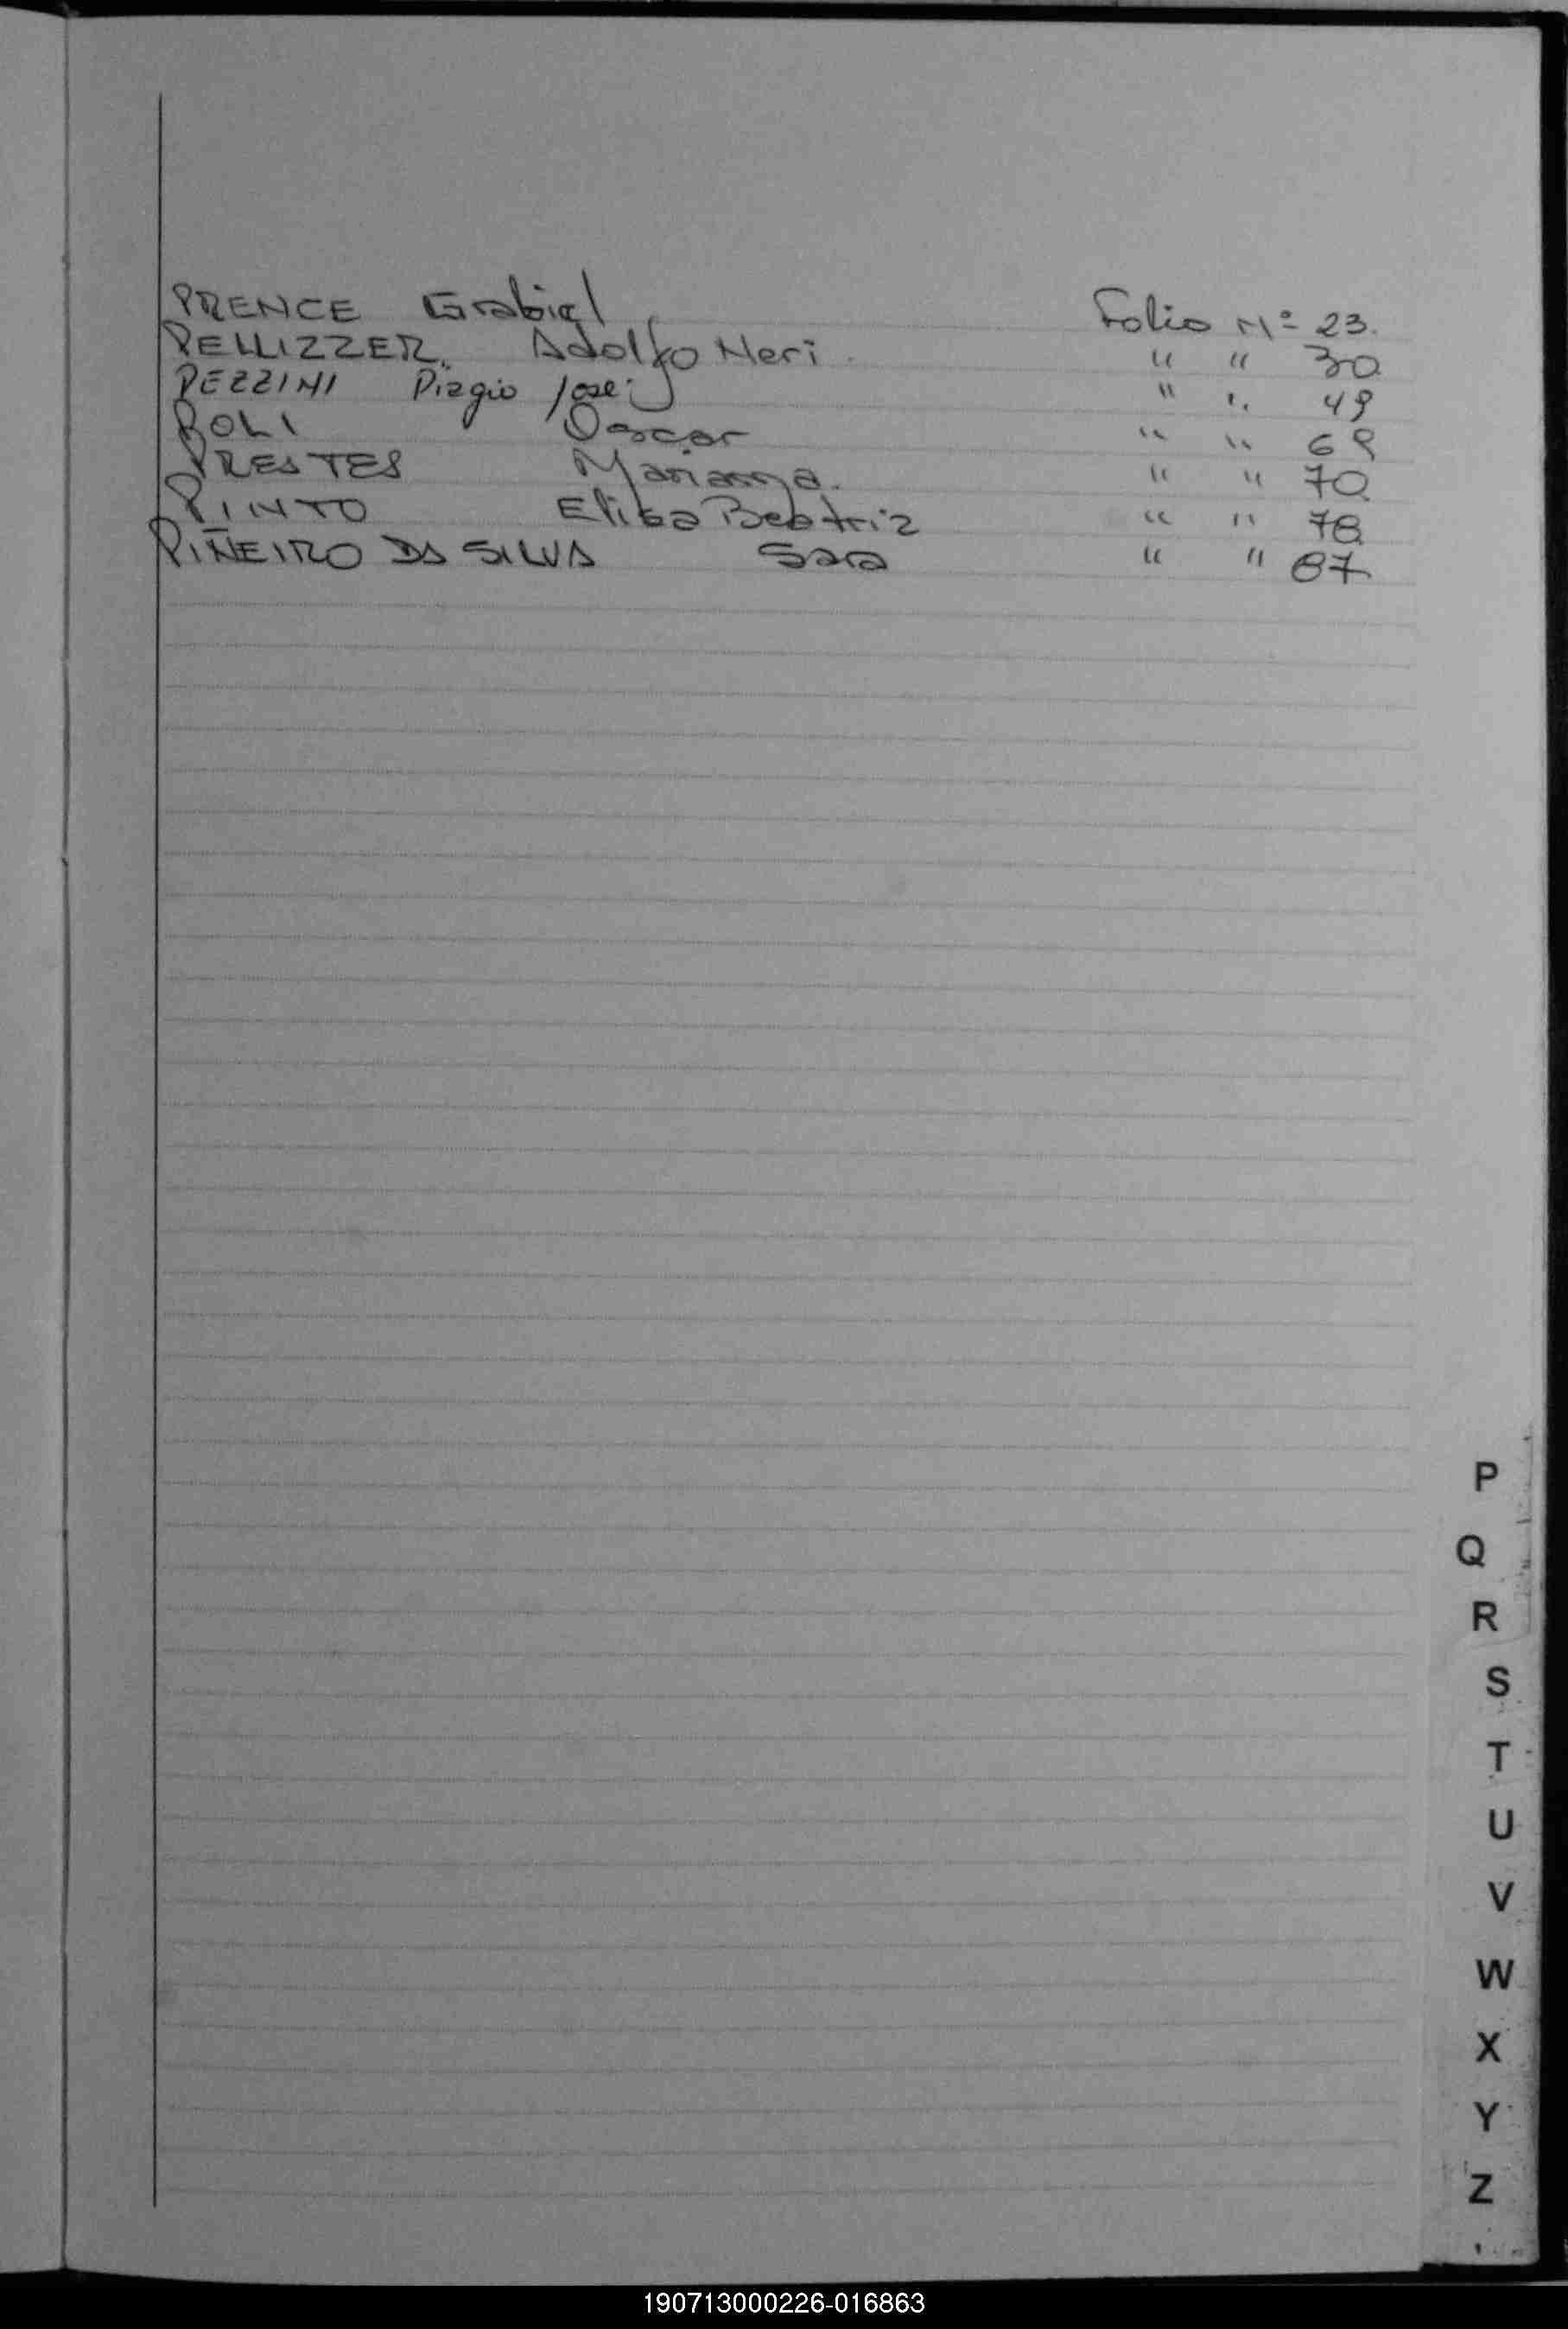 PRENCE Grabiel Folio Nº 23.
PELLIZZER. Adolfo Neri. " " 30
PEZZINI Piagio José " " 49
POLI Oscar " " 69
PRESTES Marianna. " " 70
PINTO Elisa Beatriz " " 78
PIÑEIRO DA SILVA Sara " " 87
P
Q
R
S
T
U
V
W
X
Y
Z
190713000226-016863